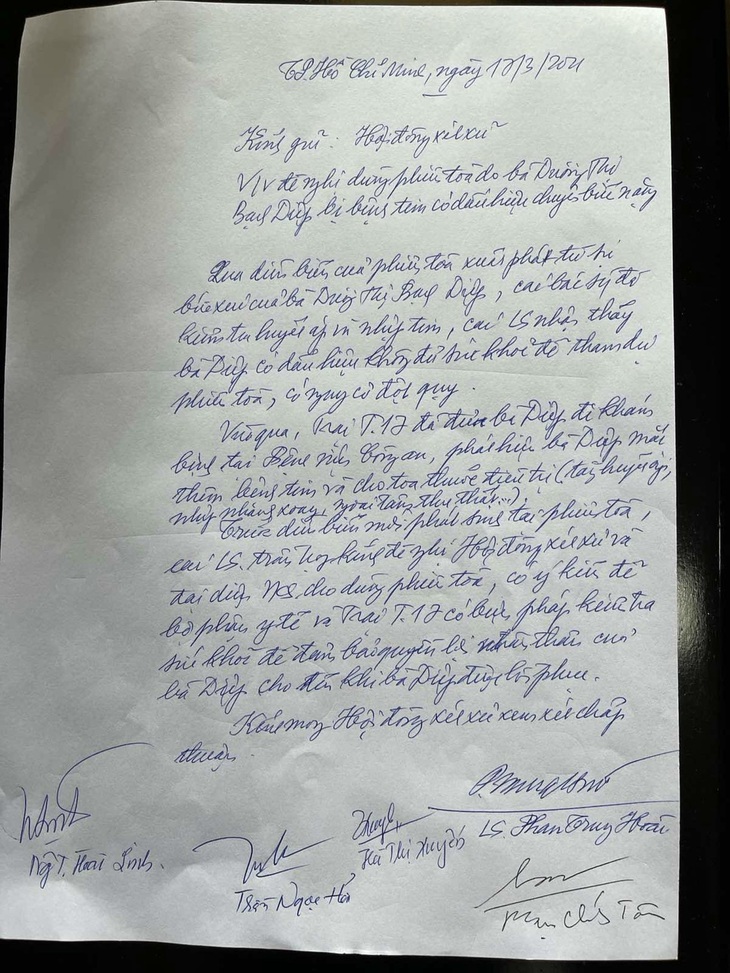 TP. Hồ Chí Minh, ngày 17/3/2021
Kính gửi: Hội đồng xét xử
V/v đề nghị dừng phiên toà do bà Dương Thị
Bạch Diệp bị bệnh tim có dấu hiệu chuyển biến nặng
Qua diễn biến của phiên toà xuất phát từ sự
bức xúc của bà Dương Thị Bạch Diệp, các bác sỹ đã
kiểm tra huyết áp và nhịp tim, các LS nhận thấy
bà Diệp có dấu hiệu không đủ sức khoẻ để tham dự
phiên toà, có nguy cơ đột quỵ.
Vừa qua, Trại T.17 đã đưa bà Diệp đi khám
bệnh tại Bệnh viện Công an, phát hiện bà Diệp mắc
thêm bệnh tim và cho toa thuốc điều trị (tăng huyết áp,
nhịp nhanh xoang, ngoại tâm thu thất...).
Trước diễn biến mới phát sinh tại phiên toà,
các LS. trân trọng kính đề nghị Hội đồng xét xử và
đại diện VKS cho dừng phiên toà, có ý kiến để
bộ phận y tế và Trại T.17 có biện pháp kiểm tra
sức khoẻ để đảm bảo quyền lợi nhân thân của
bà Diệp cho đến khi bà Diệp được hồi phục.
Kính mong Hội đồng xét xử xem xét chấp
thuận.
LS. Phan Trung Hoài
Hà Thị Xuyến
Ng T. Hoài Linh.
Trần Ngọc Hà